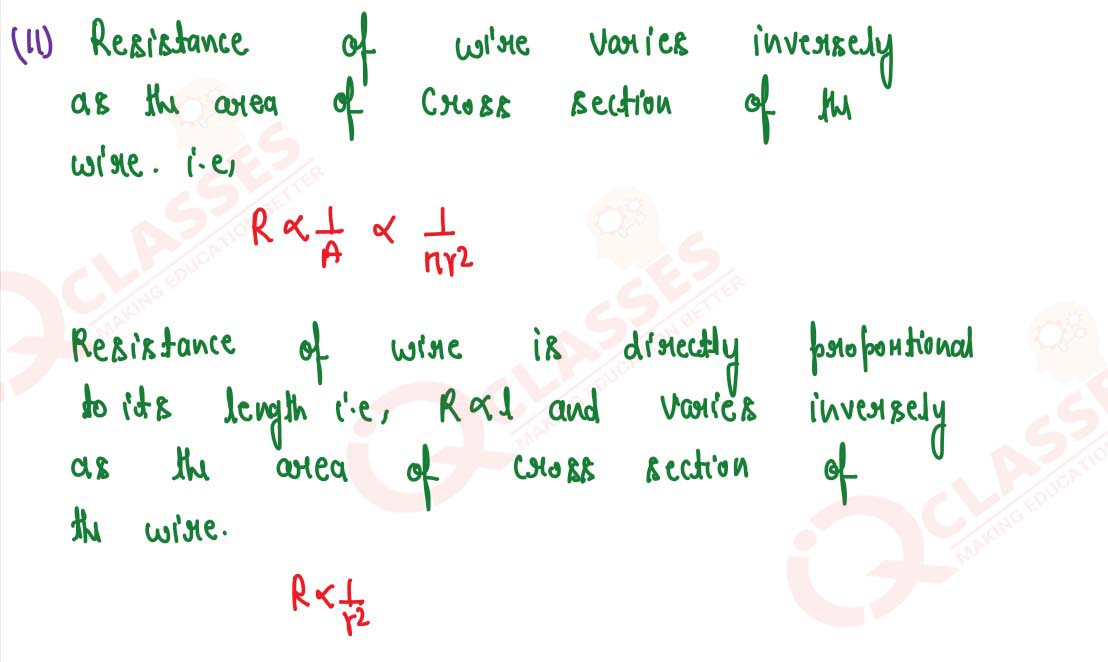 (II) Resistance of wire varies inversely
as the area of cross section of the
wire. i.e,
R ∝ 1/A ∝ 1/πr²
Resistance of wire is directly proportional
to its length i.e, R ∝ l and varies inversely
as the area of cross section of
the wire.
R ∝ 1/r²
IQ CLASSES
MAKING EDUCATION BETTER
IQ CLASSES
MAKING EDUCATION BETTER
IQ CLASSES
MAKING EDUCATION